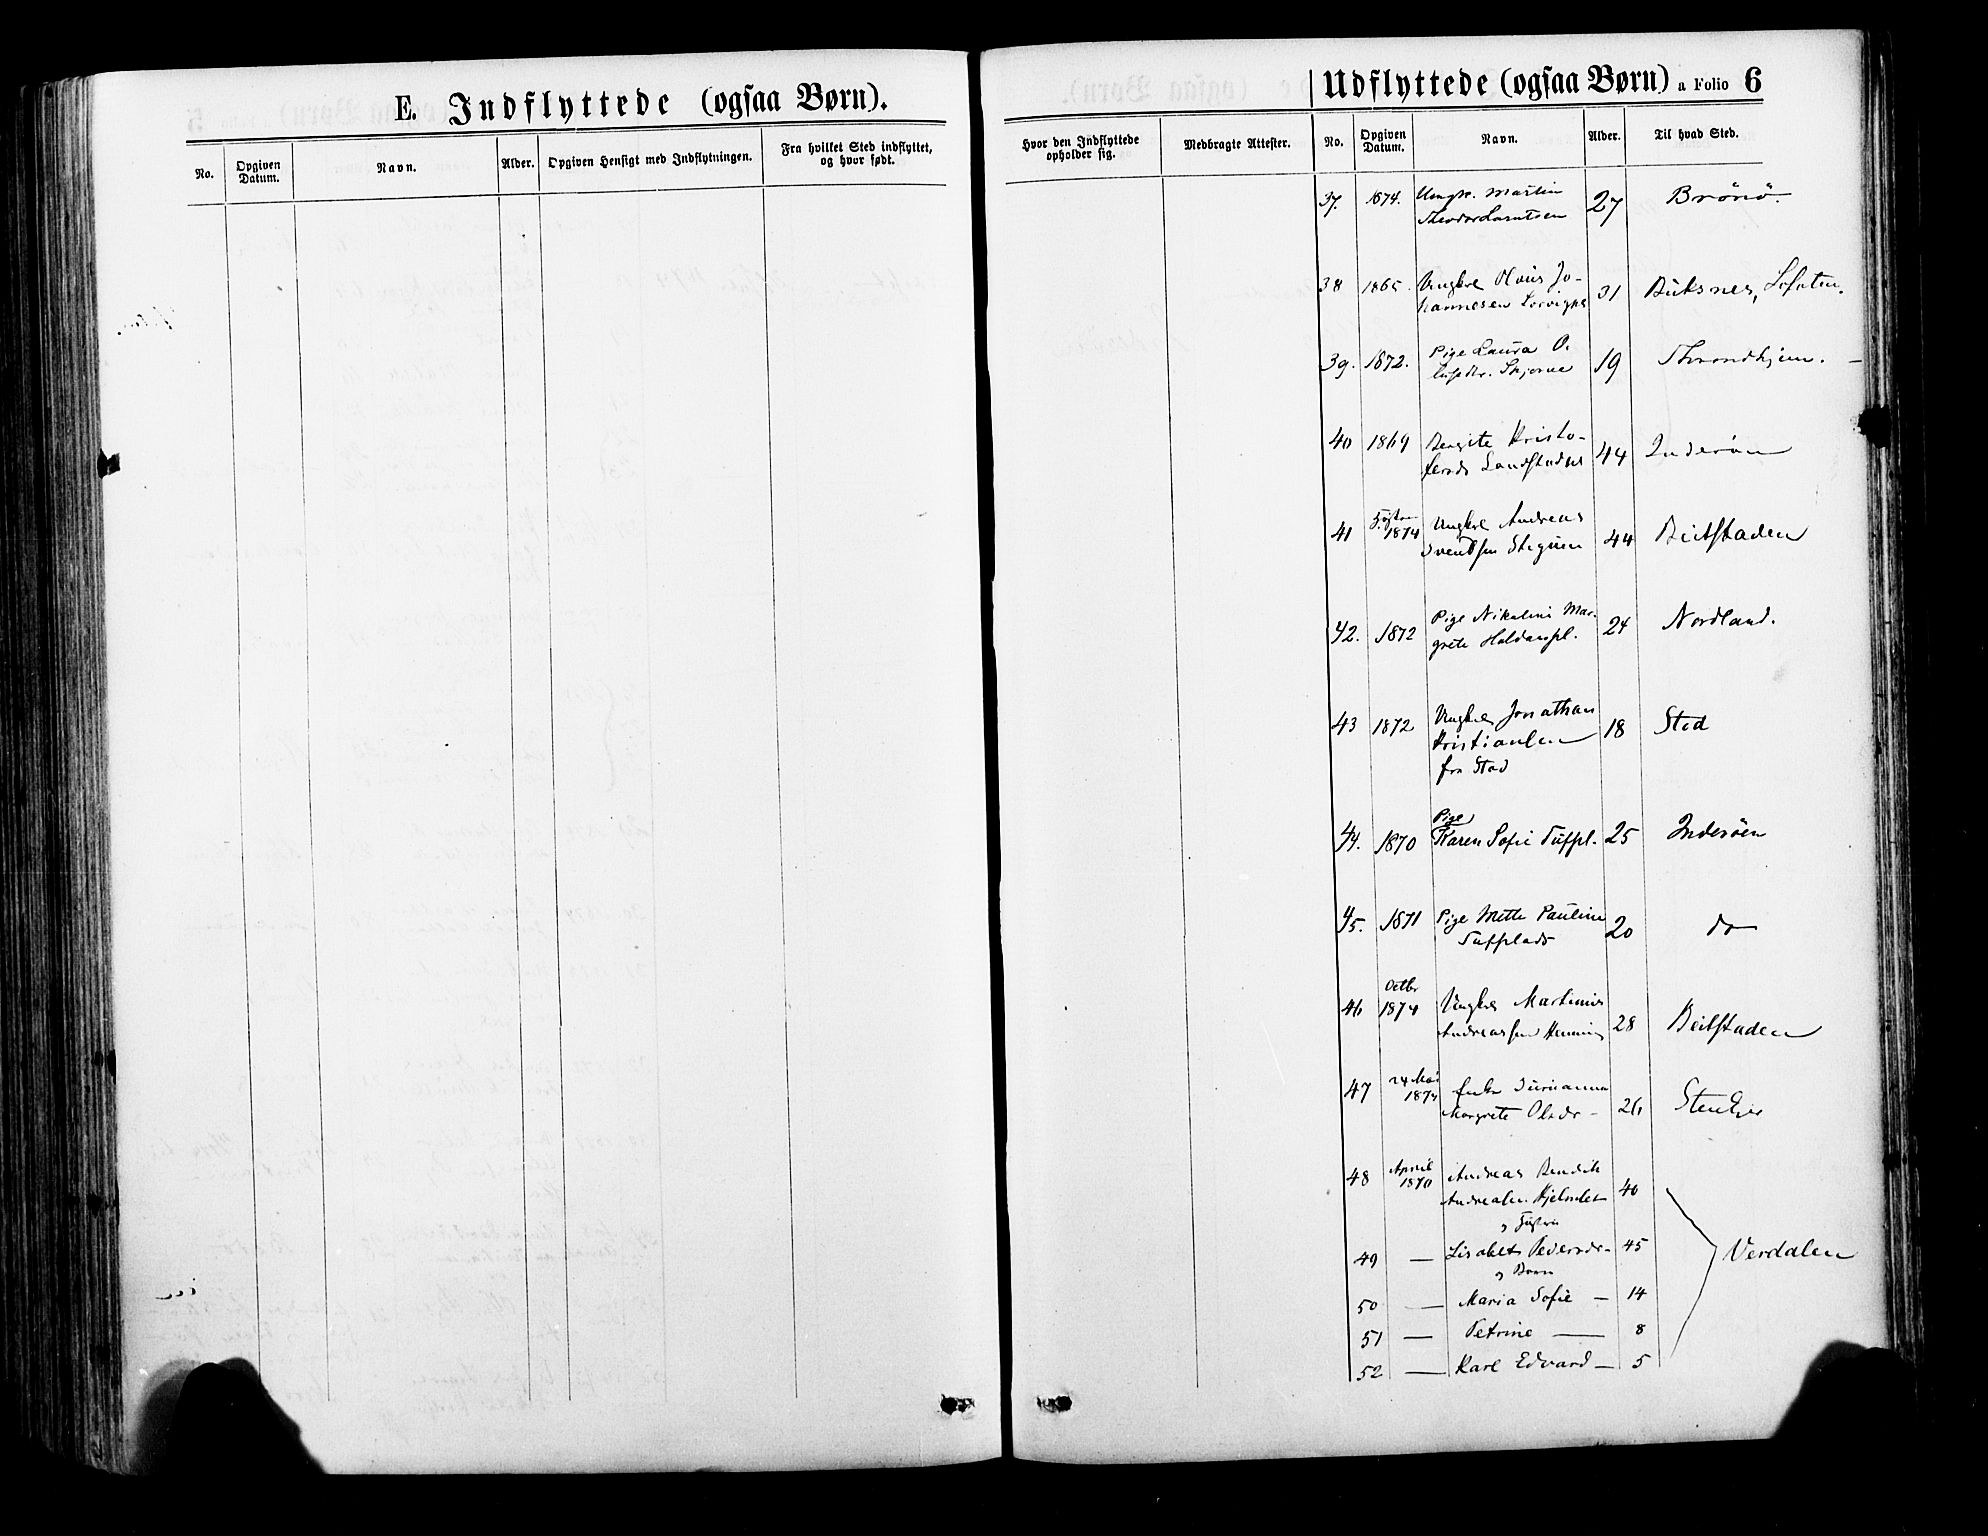 E. Indflyttede (ogsaa Børn).
No.
Opgiven
Datum.
Navn.
Alder.
Opgiven Hensigt med Indflytningen.
Fra hvilket Sted indflyttet,
og hvor født.
Hvor den Indflyttede
opholder sig.
Medbragte Attester.
Udflyttede (ogsaa Børn) a Folio 6
No.
Opgiven
Datum.
Navn.
Alder.
Til hvad Sted.
37. 1874. Ungk. Martin 27 Brönö.
Theodor Larntsen
38 1865. Ungkrl Olaus Jo- 31 Buksnes, Lofoten.
hannesen
39. 1872. Pige Laura O. 19 Throndhjem.
Skjerve
40 1869 Bergite Kristo- 44 Inderöen
fersdr
41 1874 Ungkrl Andreas 44 Beitstaden
Svendsen
42. 1872 Pige Nikoline Mar- 24 Nordland.
grete Haldanspl.
43 1872 Ungkrl Jonathan 18 Stod
Kristiansen
fra Stod
Pige
44. 1870 Karen Sofie Tufpl. 25 Inderöen
45. 1871 Pige Mette Pauline 20 do
Tufplads
Octbr
46 1874 Ungkrl Martinus 28 Beitstaden
Andreassen Henning
47 24 Mai
1874 Enke
Margrete Olsdr - 26 Stenkjer
48 April
1870 Andreas Bendik
Andreasen 40
og Hustru
49 — Lisabet Pedersdr - 45 Verdalen
og Børn
50 — Maria Sofie — 14
51 — Petrine — 8
52 — Karl Edvard — 5